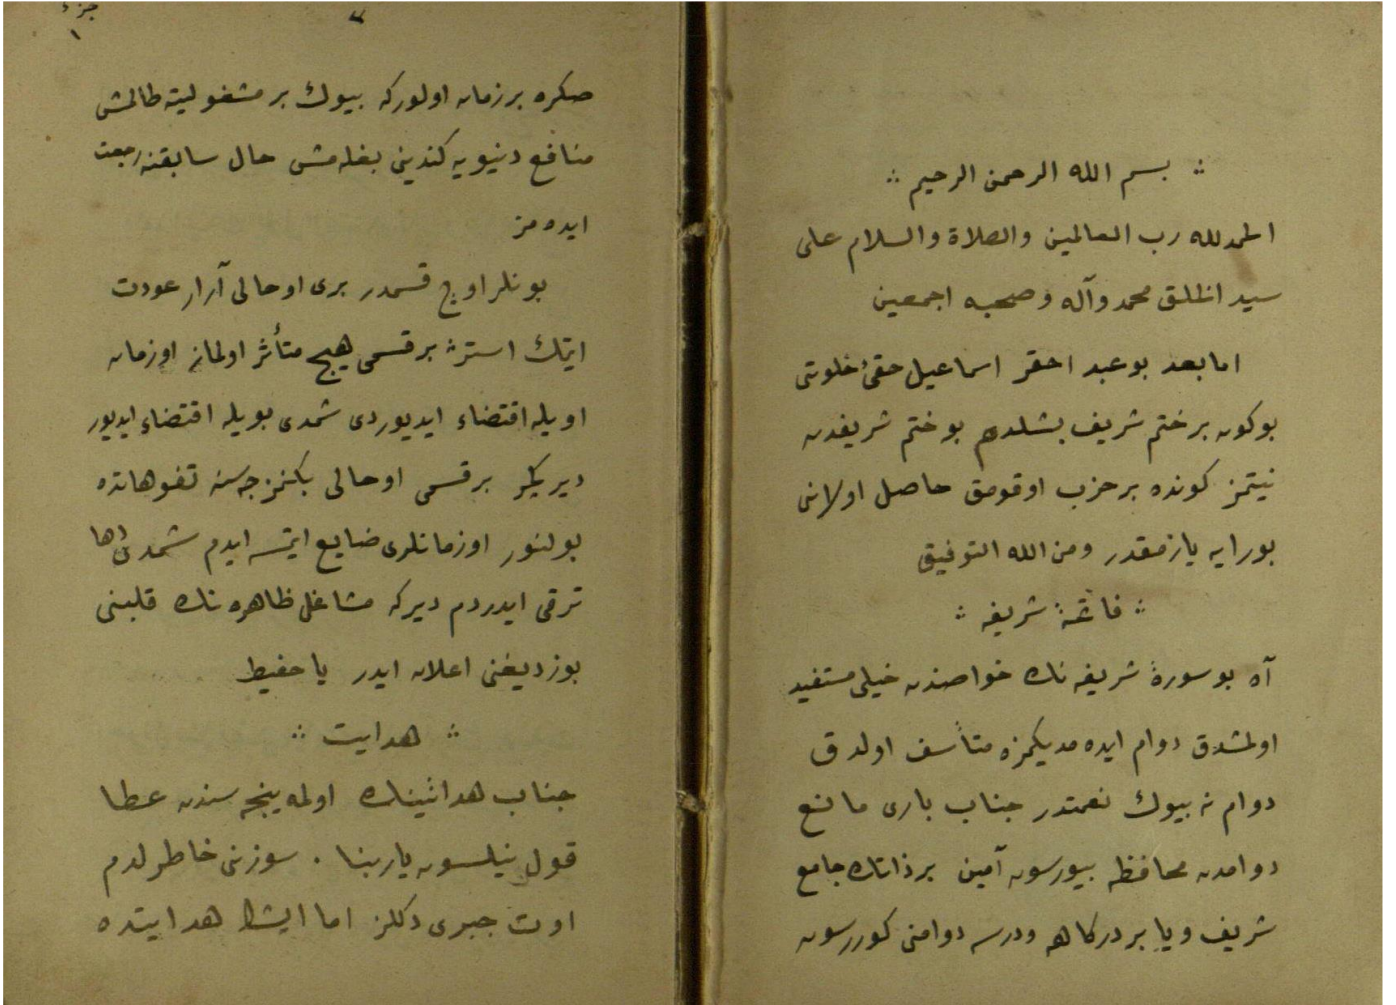 ∴ بسم الله الرحمن الرحيم ∴
الحمدلله رب العالمين والصلاة والسلام على
سيد الخلق محمد وآله وصحبه اجمعين
اما بعد بو عبد احقر اسماعيل حقئ خلوتى
بوكون بر ختم شريف بشلدم بو ختم شريفدن
نيتمز كونده بر حزب اوقومق حاصل اولانى
بورايه يازمقدر ومن الله التوفيق
∴ فاتحۀ شريفه ∴
آه بو سورۀ شريفه نك خواصندن خيلى مستفيد
اولمشدق دوام ايده مديكمزه متأسف اولدق
دوام نه بيوك نعمتدر جناب بارى مانع
دوامدن محافظه بيورسون آمين بر ذاتك جامع
شريف ويا بر دركاهه ودرسه دوامنى كوررسون
جزء
١
٢
صكره بر زمان اولوركه بيوك بر مشغوليته طالمش
منافع دنيويه كنديني بغله مش حال سابقنه رجعت
ايده مز
بونلر اوچ قسمدر برى او حالى آرار عودت
ايتمك استر برقسمى هيچ متأثر اولماز اوزمان
اويله اقتضاء ايديوردى شمدى بويله اقتضاء ايديور
ديريلر برقسمى او حالى بكنمزجه سنه تفوهاتده
بولنور اوزمانلرى ضايع ايتمسه ايدم شمدى داها
ترقى ايدردم ديركه مشاغل ظاهره نك قلبنى
بوزديغنى اعلان ايدر يا حفيظ
∴ هدايت ∴
جناب هدائينك اولمه ينجه سندن عطا
قول نيلسون ياربنا . سوزنى خاطرلدم
اوت جبرى دكلز اما ايشا هدايتده